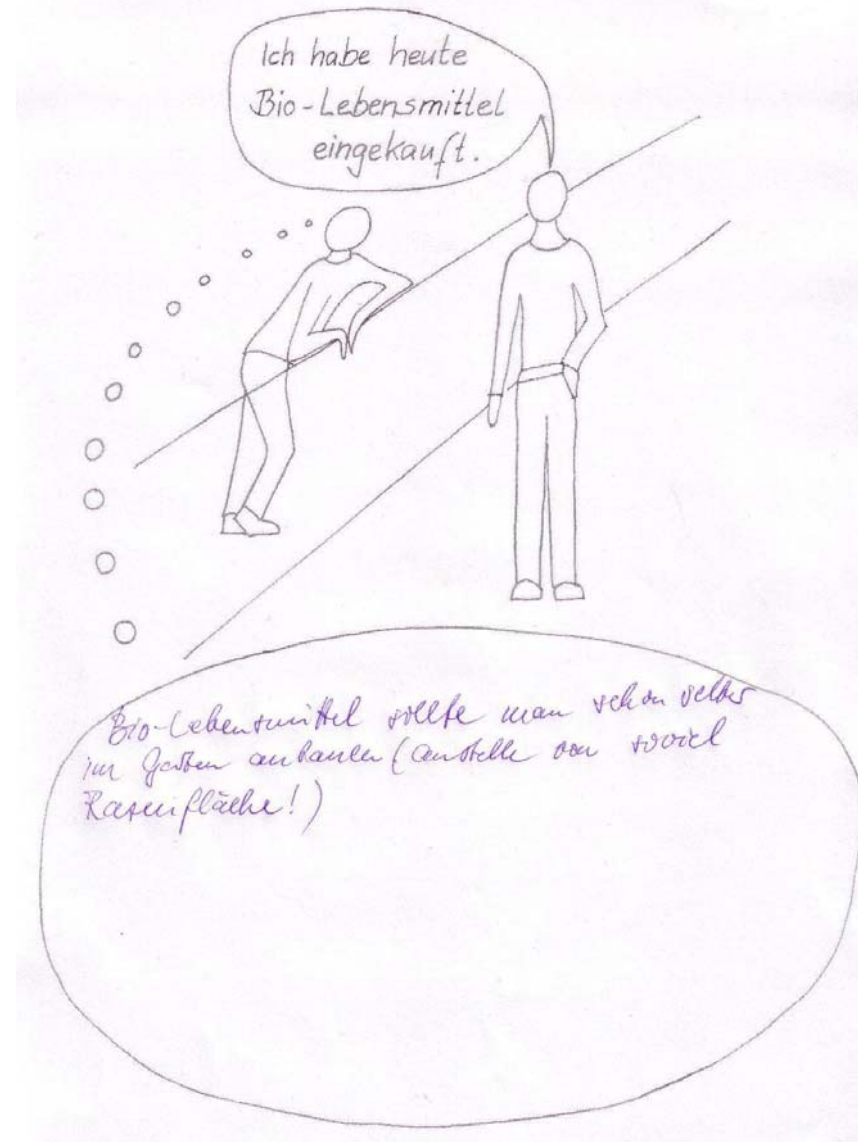 Ich habe heute
Bio-Lebensmittel
eingekauft.
Bio-Lebensmittel sollte man schon selber
im Garten anbauen (anstelle von soviel
Rasenfläche!)